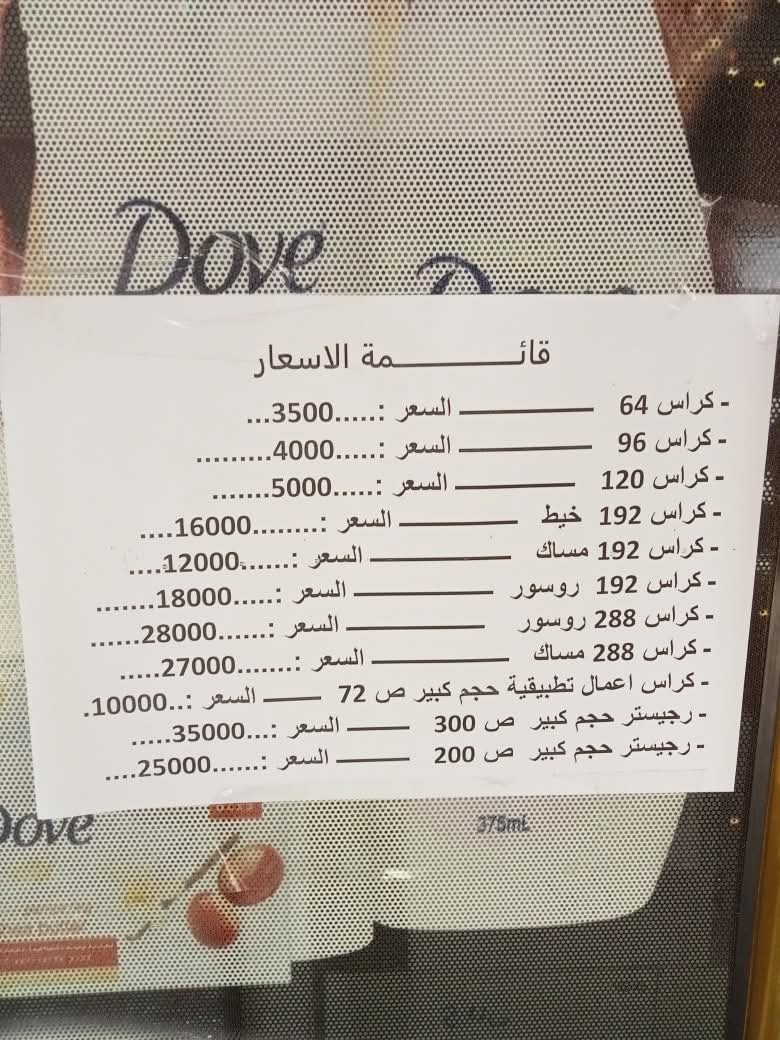 Dove
قائـــــمة الاسعار
- كراس 64 ــــــــــ السعر :.....3500...
- كراس 96 ــــــــــ السعر :.....4000.........
- كراس 120 ــــــــــ السعر :.....5000.......
- كراس 192 خيط ــــــــــ السعر :........16000....
- كراس 192 مساك ــــــــــ السعر :......12000....
- كراس 192 روسور ــــــــــ السعر :.....18000.......
- كراس 288 روسور ــــــــــ السعر :......28000......
- كراس 288 مساك ــــــــــ السعر :.......27000.....
- كراس اعمال تطبيقية حجم كبير ص 72 ــــــ السعر :..10000.
- رجيستر حجم كبير ص 300 ــــــ السعر :...35000.....
- رجيستر حجم كبير ص 200 ــــــ السعر :......25000....
Dove
375mL